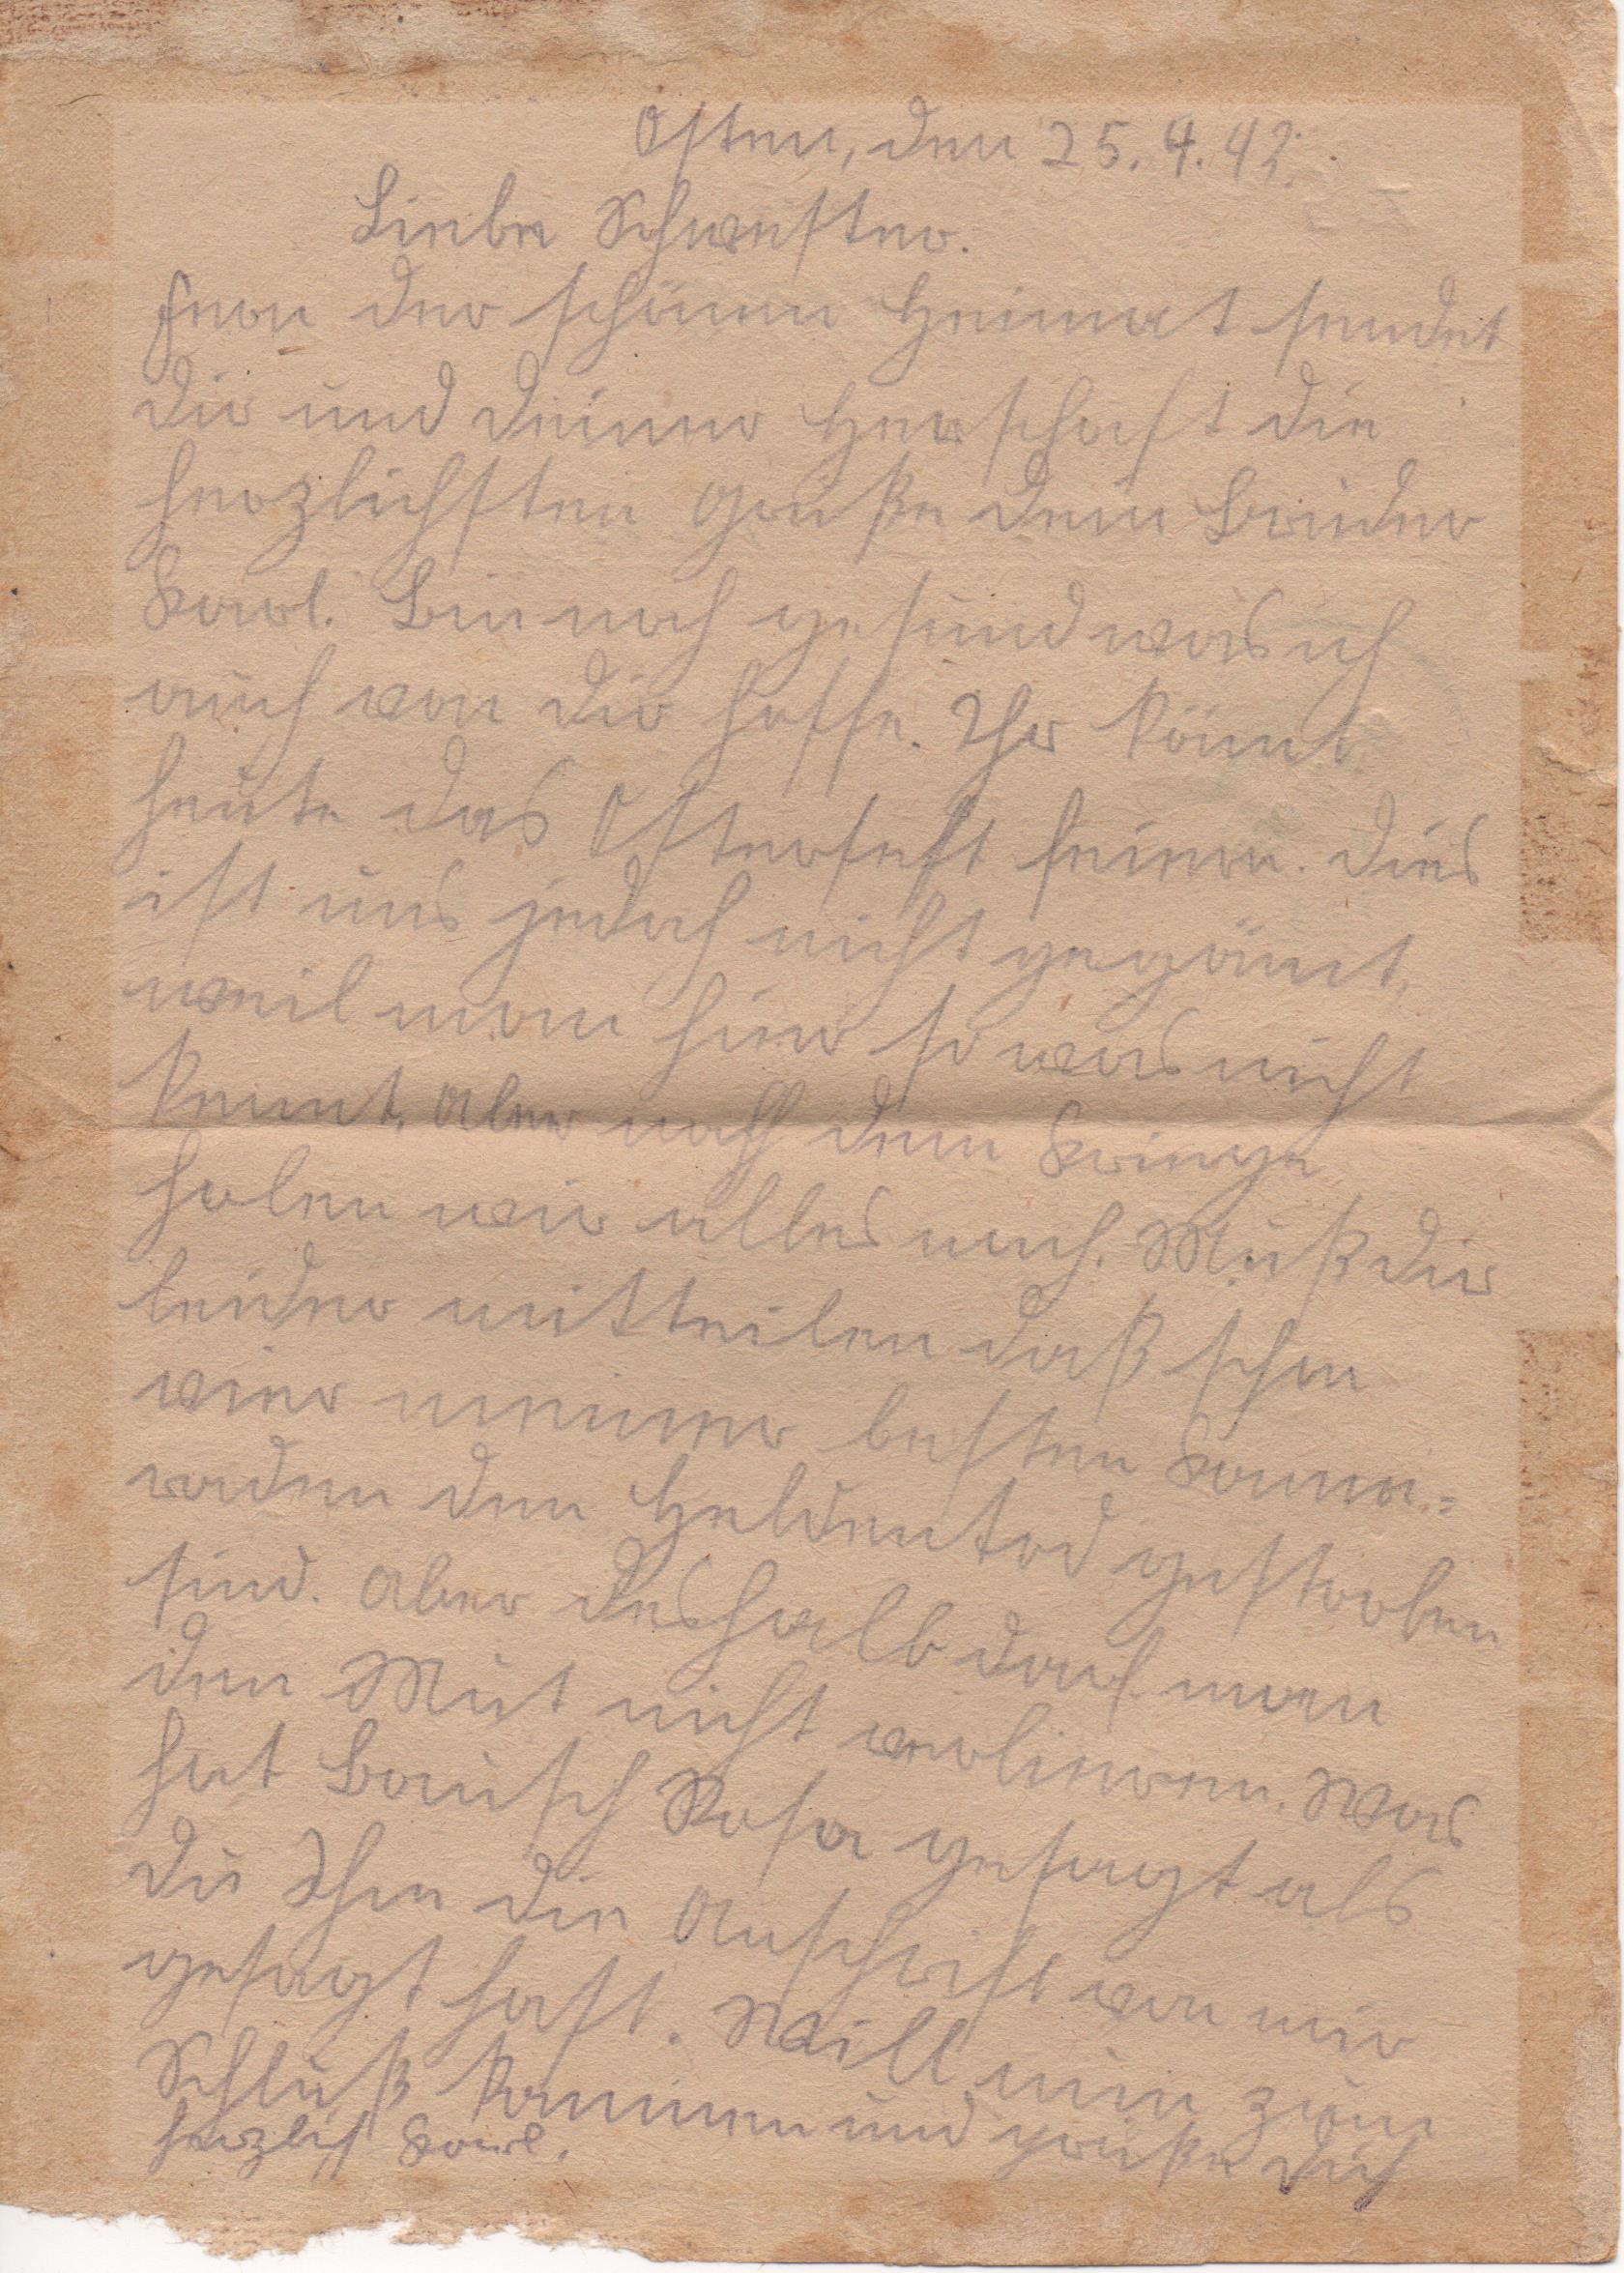 Osten, den 25.4.42.
Liebe Schwester.
Fern der schönen Heimat sendet
dir und deiner Herrschaft die
herzlichsten Grüße dein Bruder
Karl. Bin noch gesund was ich
auch von dir hoffe. Ihr könnt
heute das Osterfest feiern. Dies
ist uns jedoch nicht gegönnt,
weil man hier so was nicht
kennt. Aber nach dem Kriege
holen wir alles nach. Muß dir
leider mitteilen daß schon
vier meiner besten Kame=
raden den Heldentod gestorben
sind. Aber deshalb darf man
den Mut nicht verlieren. Was
hat Rosa gesagt als
du Ihr die Anschrift von mir
gesagt hast. Will nun zum
Schluß kommen und grüße dich
herzlich Karl.